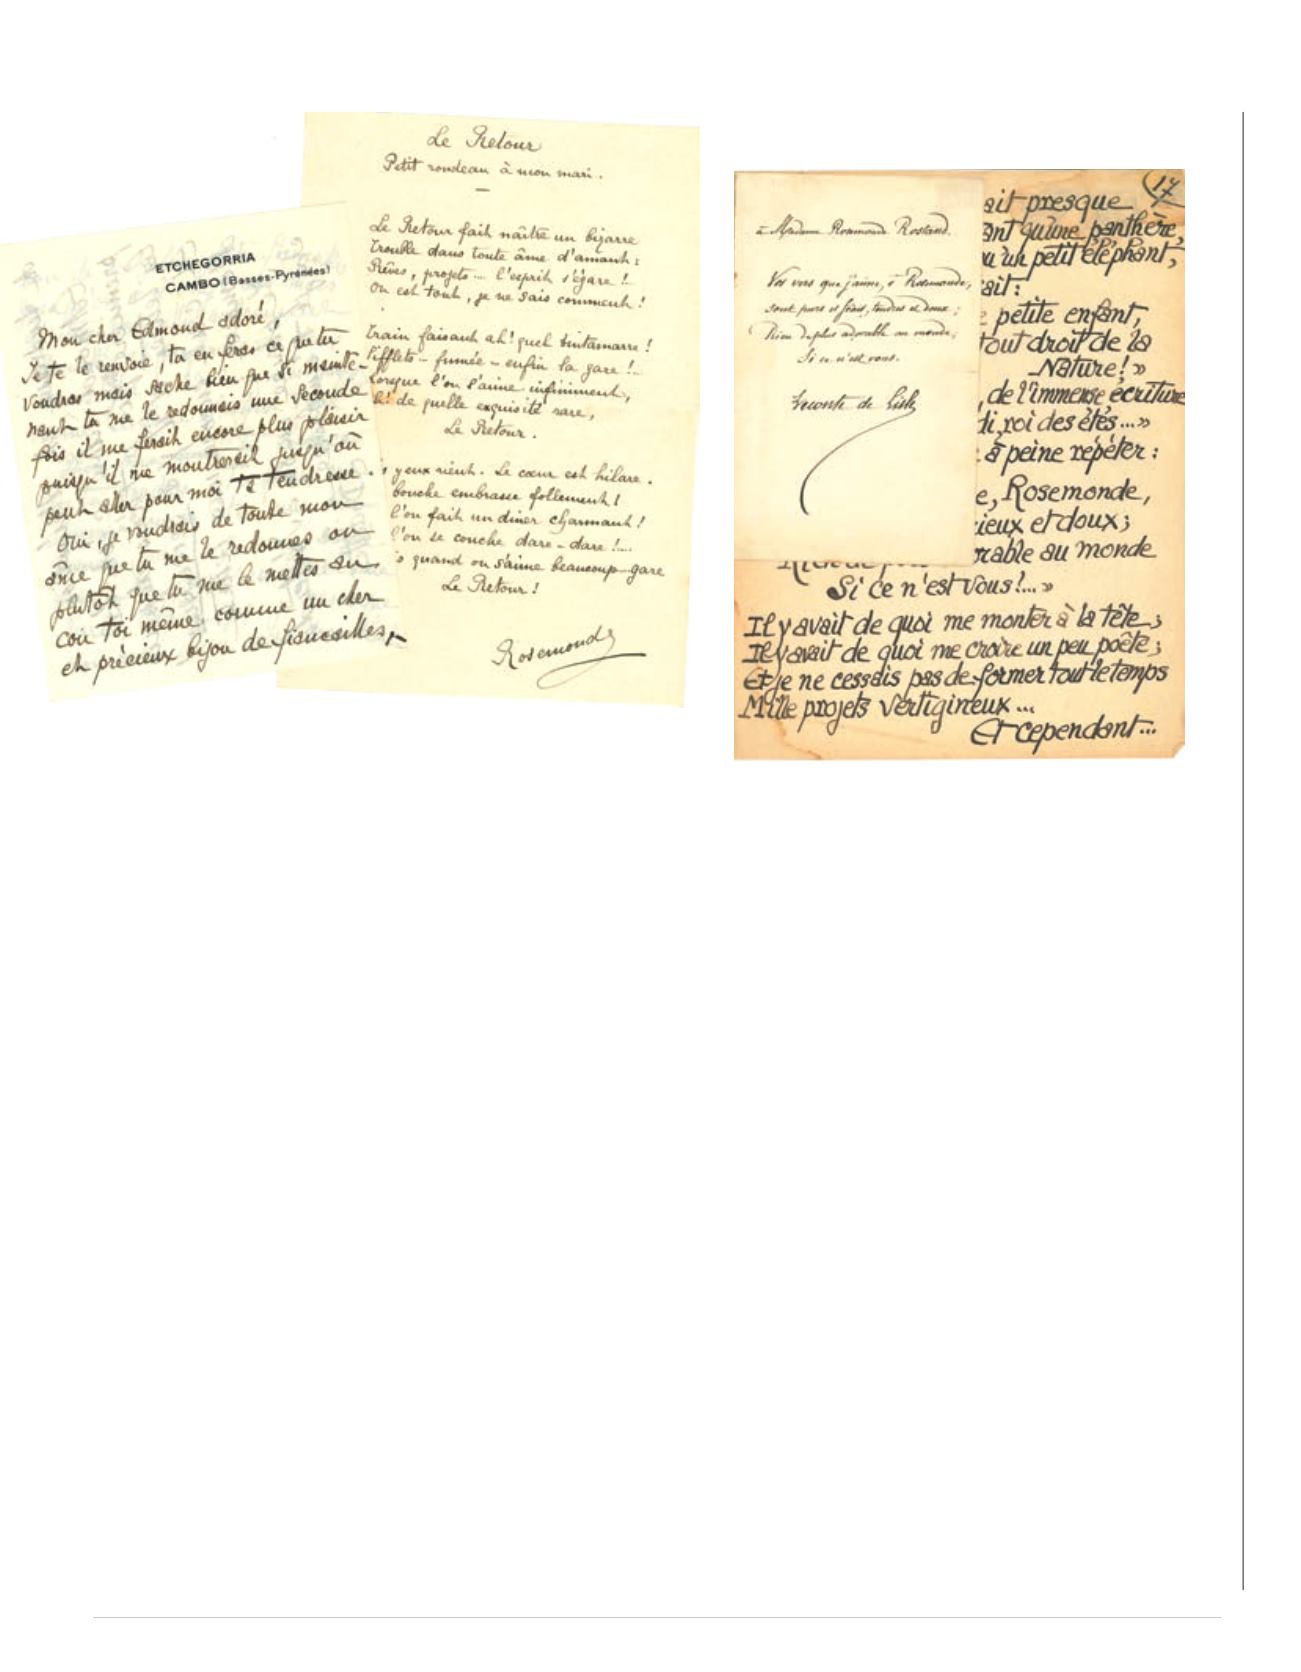 ETCHEGORRIA
CAMBO (Basses-Pyrénées)
Mon cher Edmond adoré,
Je te le renvoie, tu en feras ce que tu
voudras mais sache bien que si mainte-
nant tu me le redonnais une seconde
fois il me ferait encore plus plaisir
puisqu'il me montrerait jusqu'où
peut aller pour moi ta tendresse.
Oui, je voudrais de toute mon
âme que tu me le redonnes ou
plutôt que tu me le mettes au
cou toi même comme un cher
et précieux bijou de fiancailles,
Le Retour
Petit rondeau à mon mari.
Le Retour fait naître un bizarre
Trouble dans toute âme d'amant :
Rêves, projets.... l'esprit s'égare !
On est tout, je ne sais comment !
Train faisant ah! quel tintamarre !
Sifflets - fumée - enfin la gare !..
Lorsque l'on s'aime infiniment,
h! de quelle exquisité rare,
Le Retour.
s yeux rient. Le cœur est hilare.
bouche embrasse follement !
l'on fait un dîner charmant !
l'on se conche dare-dare !....
s quand on s'aime beaucoup gare
Le Retour !
Rosemonde
à Madame Rosemonde Rostand.
Vos vers que j'aime, ô Rosemonde,
sont purs et frais, tendres et doux ;
Rien de plus adorable au monde,
Si ce n'est vous.
Leconte de Lisle
17
ait presque
ant qu'une panthère,
u'un petit éléphant,
ait :
petite enfant,
tout droit de la
Nature! »
, de l'immense écriture
di, roi des étés... »
à peine répéter :
e, Rosemonde,
ieux et doux ;
rable au monde
Si ce n'est Vous!... »
Il y avait de quoi me monter à la tête ;
Il y avait de quoi me croire un peu poête ;
Et je ne cessais pas de former tout le temps
Mille projets vertigineux ...
Et cependant...